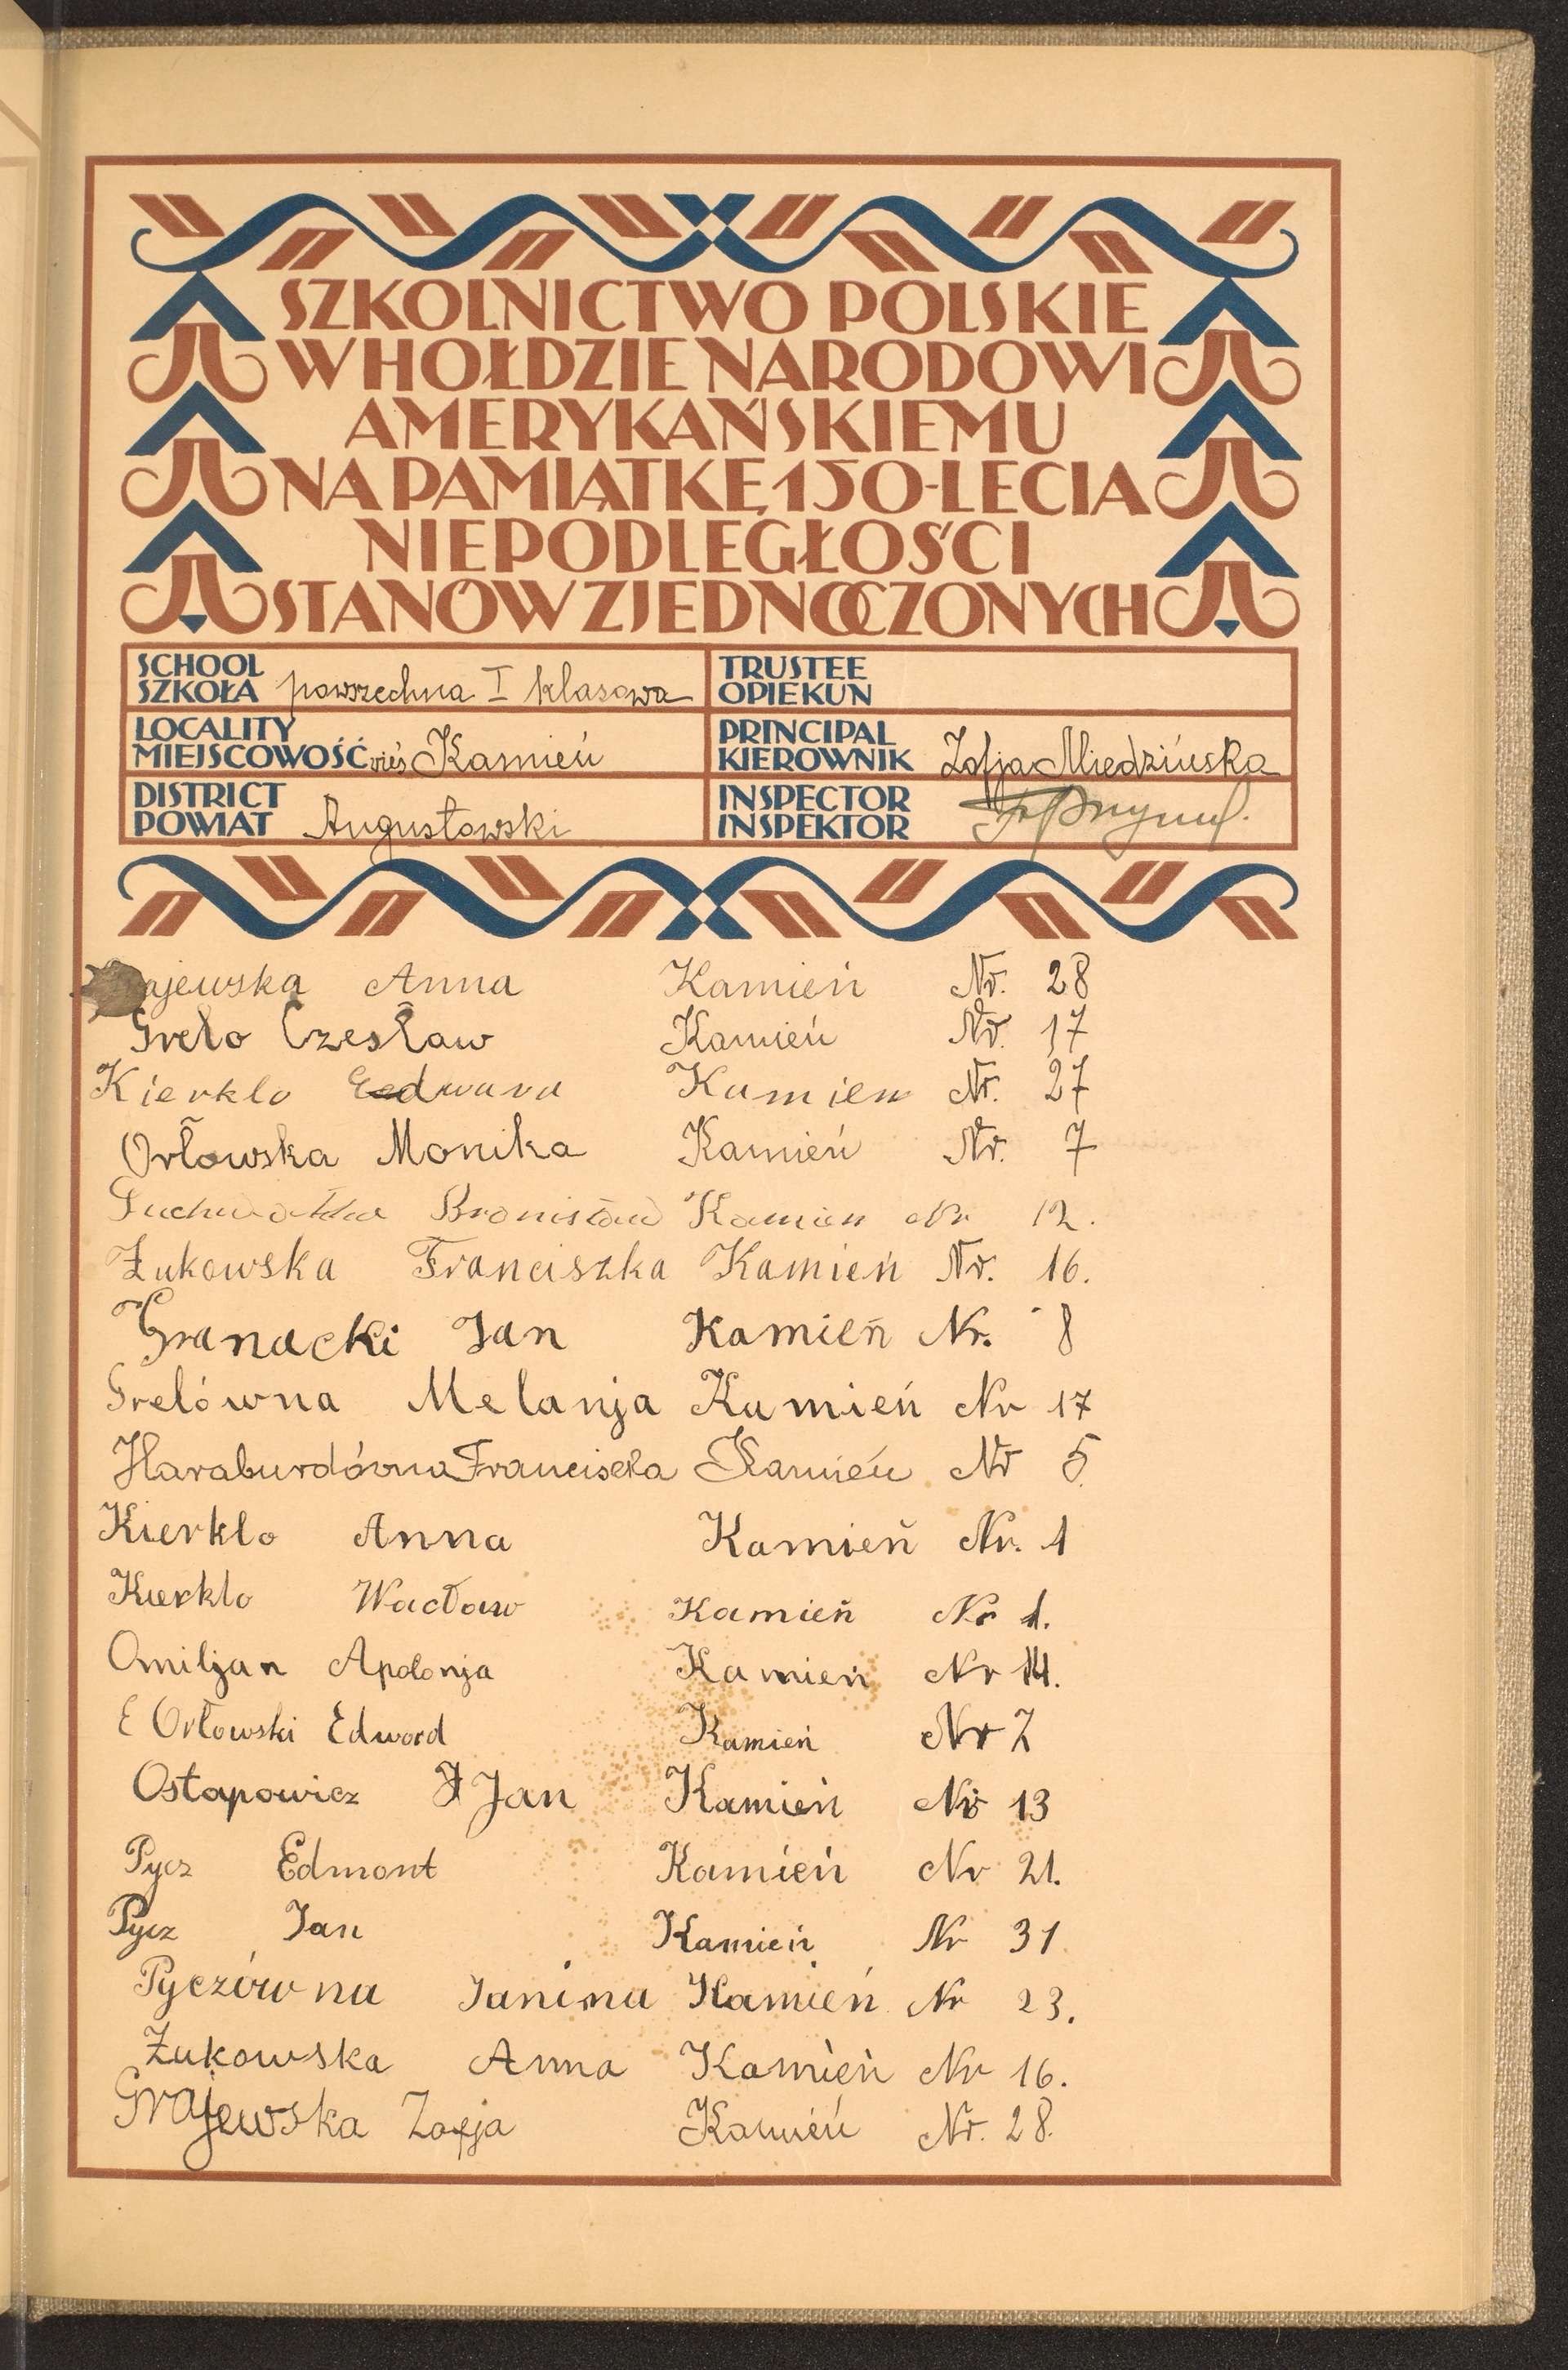 SZKOLNICTWO POLSKIE
W HOŁDZIE NARODOWI
AMERYKAŃSKIEMU
NA PAMIĄTKĘ 150-LECIA
NIEPODLEGŁOŚCI
STANÓW ZJEDNOCZONYCH
SCHOOL
SZKOŁA powszechna I klasowa
TRUSTEE
OPIEKUN
LOCALITY
MIEJSCOWOŚĆ wieś Kamień
PRINCIPAL
KIEROWNIK Zofja Miedzińska
DISTRICT
POWIAT Augustowski
INSPECTOR
INSPEKTOR
ajewska Anna Kamień Nr. 28
Greło Czesław Kamień Nr. 17
Kierklo Edward Kamien Nr. 27
Orłowska Monika Kamień Nr. 7
Bronisław Kamien Nr 12.
Żukowska Franciszka Kamień Nr. 16.
Granacki Jan Kamień Nr. 8
Grelówna Melanja Kamień Nr 17
Haraburdówna Franciszka Kamień Nr 5
Kierklo Anna Kamień Nr. 1
Kierklo Wacław Kamień Nr 1.
Omiljan Apolonja Kamień Nr 14.
E Orłowski Edword Kamień Nr 7
Ostapowicz Jan Kamień Nr 13
Pycz Edmont Kamień Nr 21.
Pycz Jan Kamień Nr 31
Pyczówna Janina Kamień Nr 23.
Żukowska Anna Kamień Nr 16.
Grajewska Zofja Kamień Nr. 28.